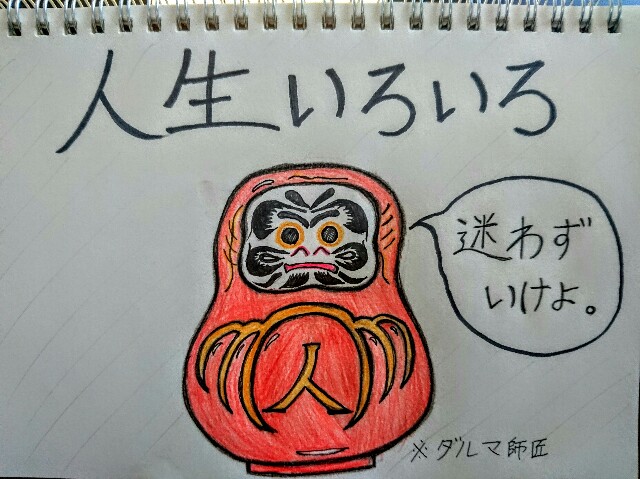 人生いろいろ
迷わず
いけよ。
人
※ダルマ師匠